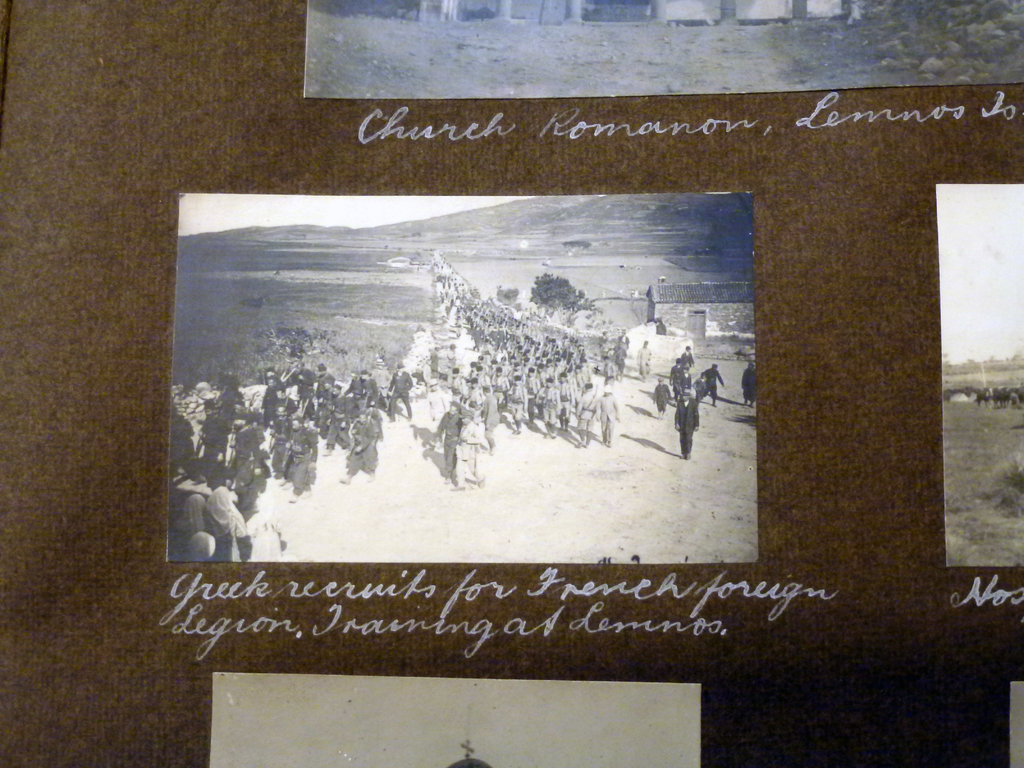 Church Romanon, Lemnos Is.
Greek recruits for French foreign
Legion. Training at Lemnos.
Hos